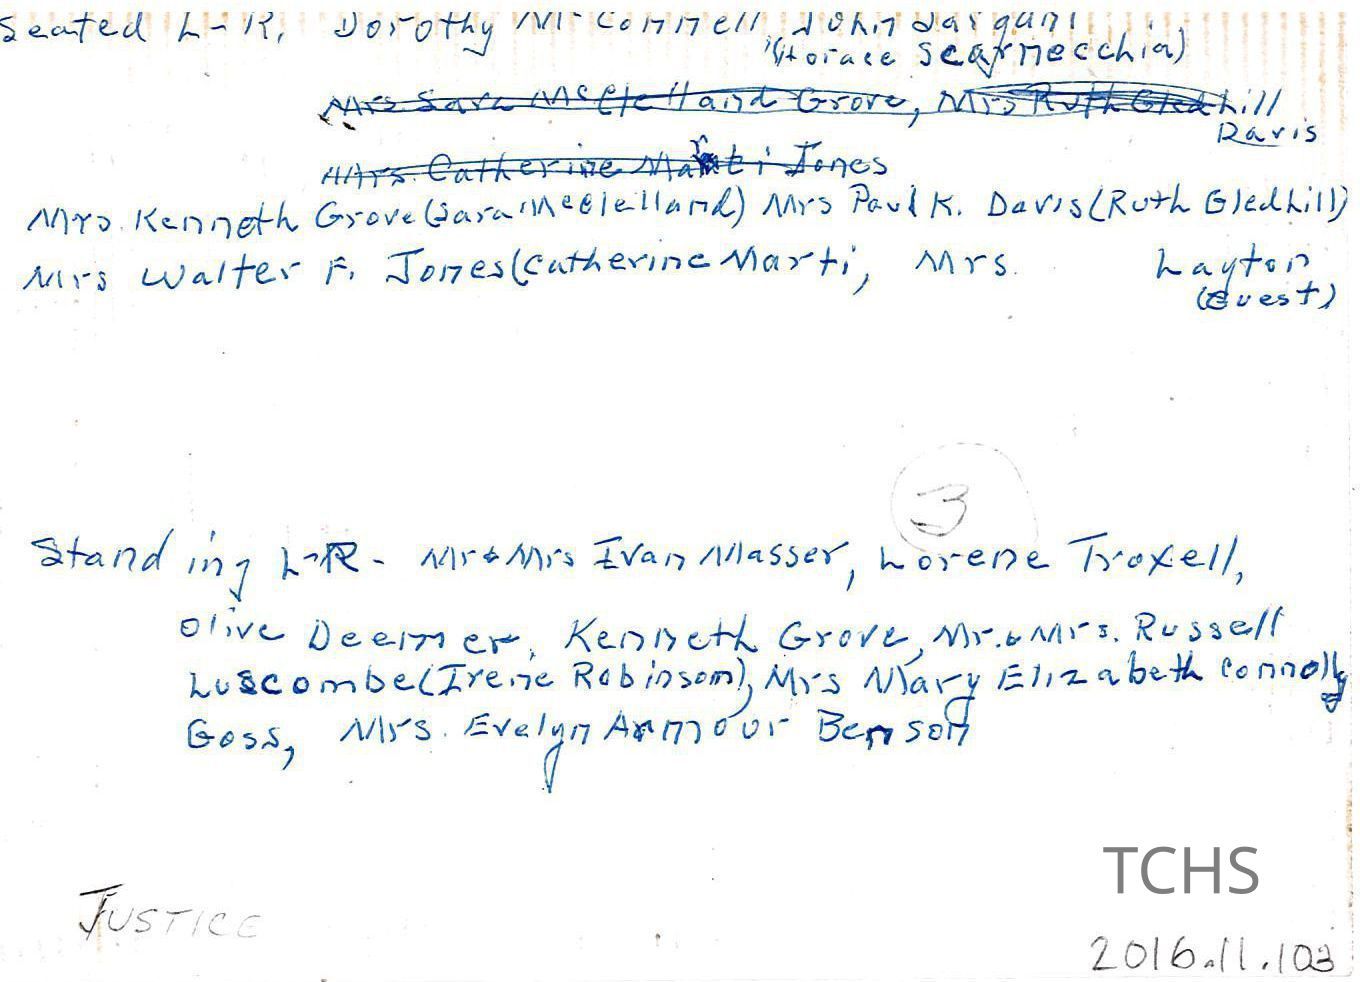 Seated L-R. Dorothy McConnell, John Sargant
(Horace Scarnecchia)
Mrs. Sara McClelland Grove, Mrs Ruth Gledhill
Davis
Mrs. Catherine Marti Jones
Mrs. Kenneth Grove (Sara McClelland) Mrs Paul K. Davis (Ruth Gledhill)
Mrs Walter F. Jones (Catherine Marti, Mrs. Layton
(Guest)
3
Standing L-R - Mr & Mrs Ivan Masser, Lorene Troxell,
Olive Deemer, Kenneth Grove, Mr. & Mrs. Russell
Luscombe (Irene Robinson), Mrs Mary Elizabeth Connolly
Goss, Mrs. Evelyn Armour Benson
TCHS
JUSTICE
2016.11.103